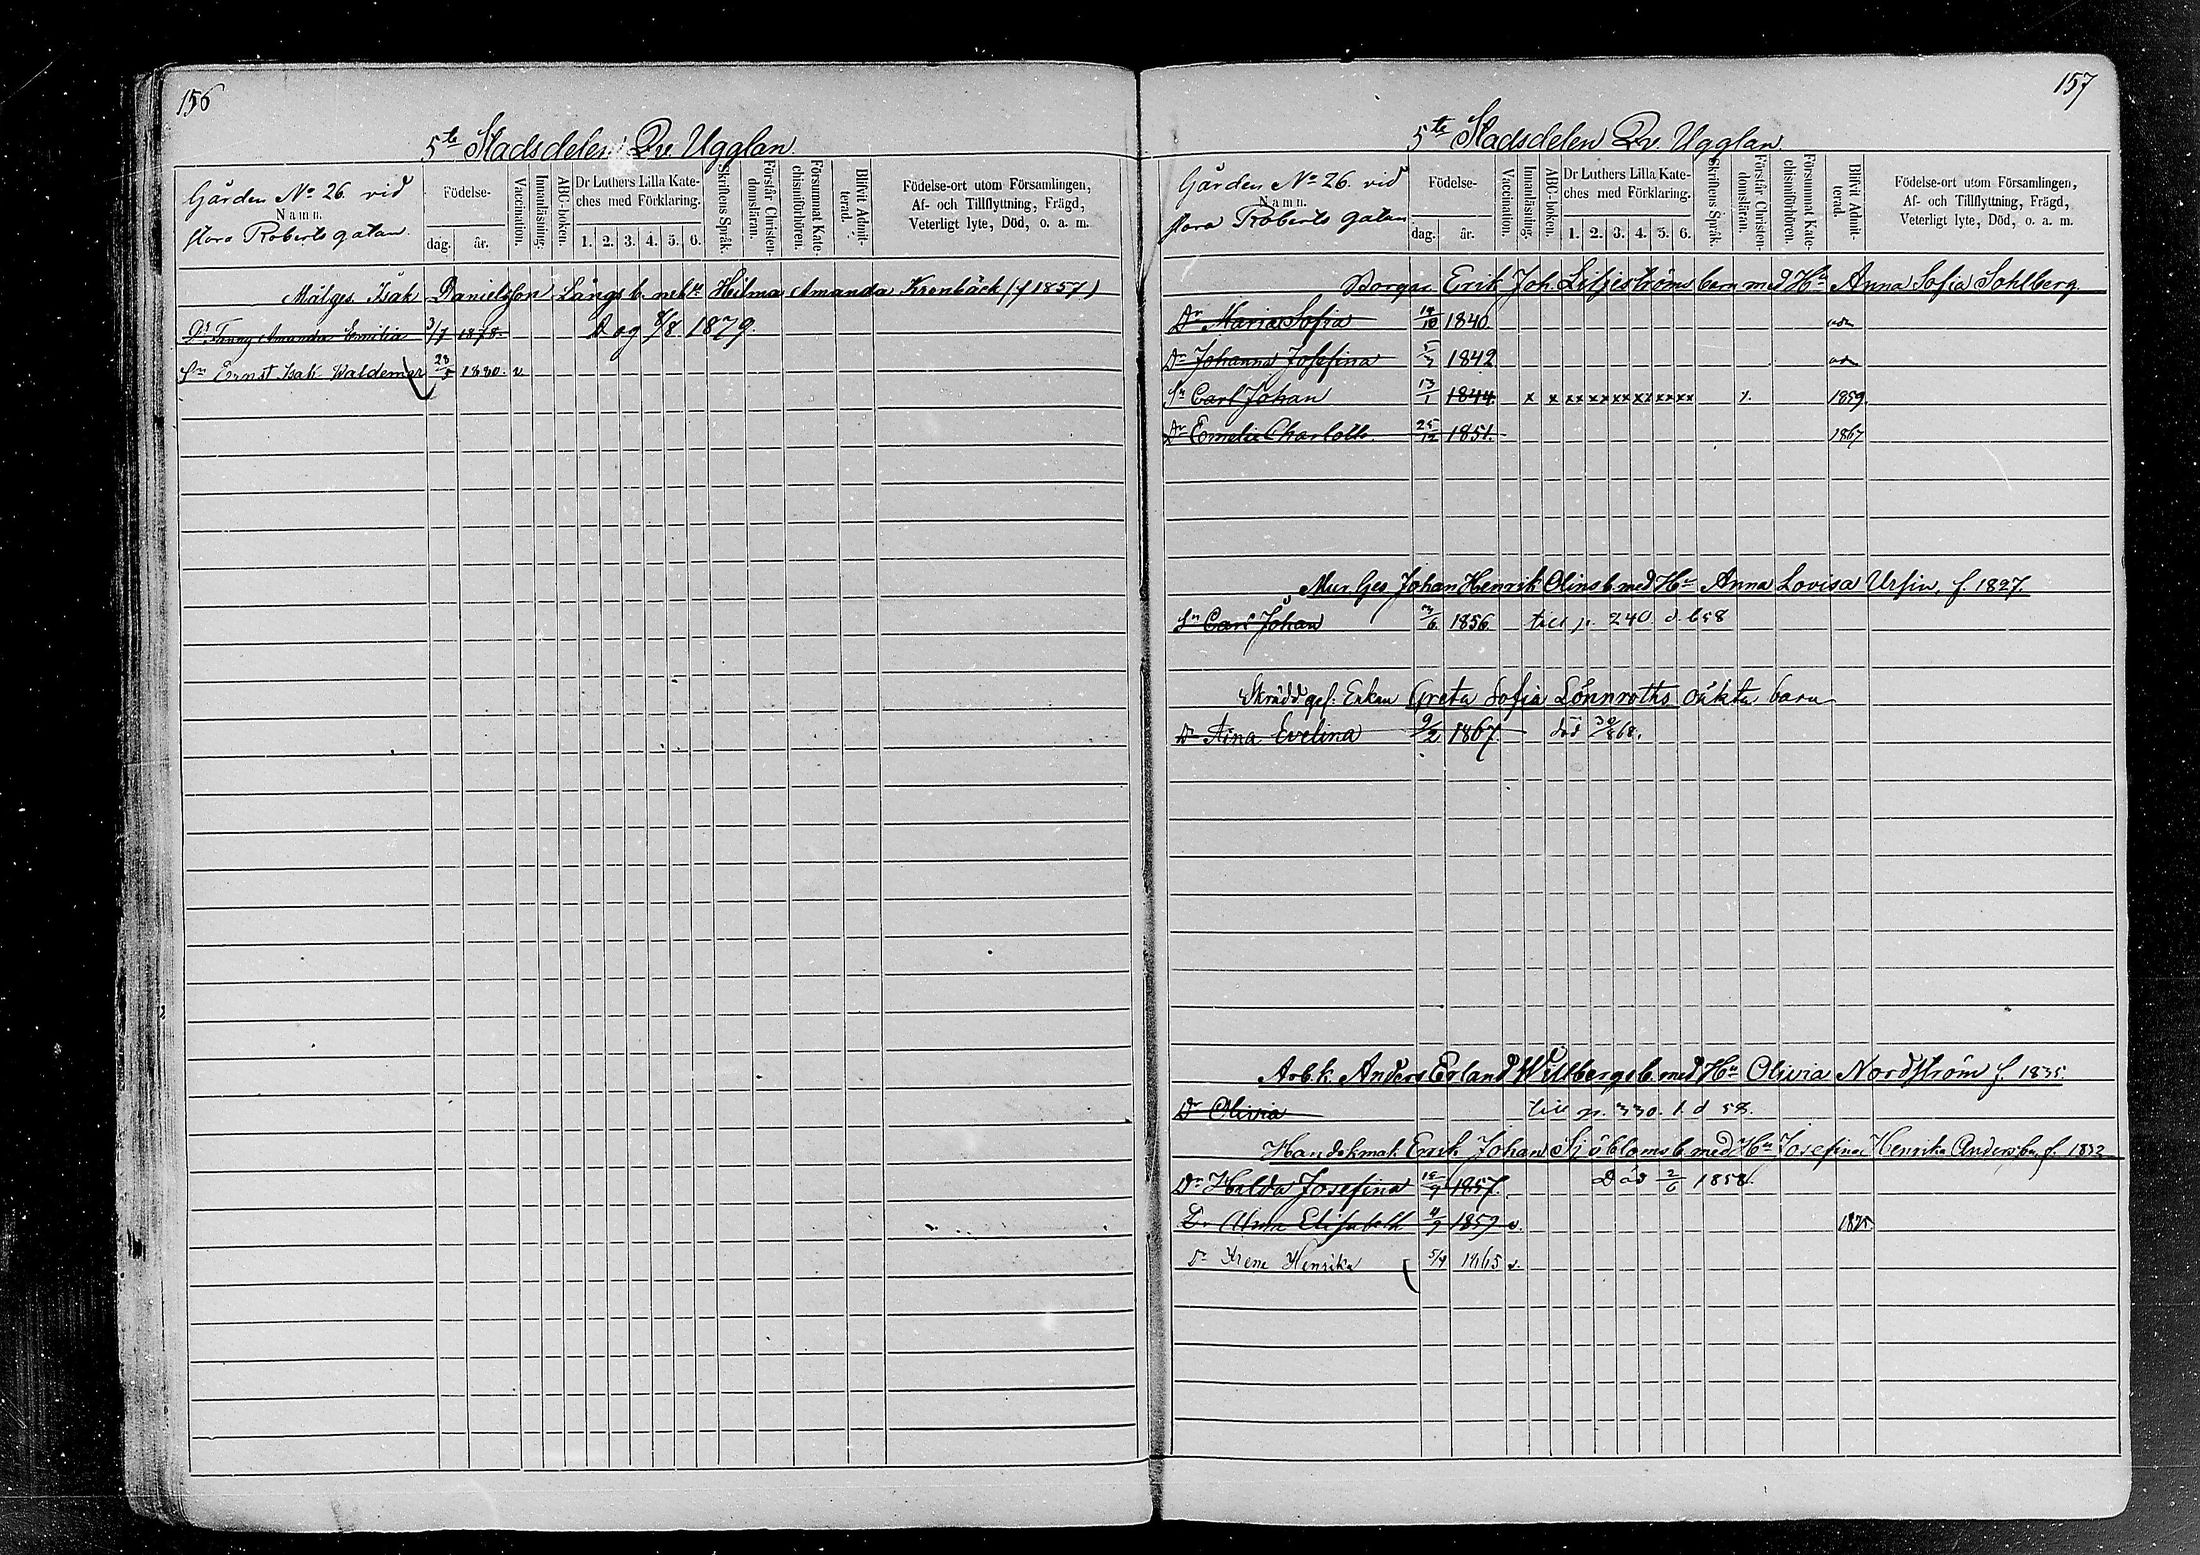 156
5te Stadsdelen Qv. Ugglan
Gården No 26. vid
Namn.
stora Roberts gatan.
Födelse-
dag.
år.
Vaccination.
Innanläsning.
ABC-boken.
Dr Luthers Lilla Kate-
ches med Förklaring.
1. 2. 3. 4. 5. 6.
Skriftens Språk.
Förstår Christen-
domsläran.
Försummat Kate-
chismiförhören.
Blifvit Admit-
terad.
Födelse-ort utom Församlingen,
Af- och Tillflyttning, Frägd,
Veterligt lyte, Död, o. a. m.
Målges. Isak Danielsson Långs b. Hilma Amanda Kronbäck (f 1857)
Dr Fanny Amanda Emilia 3/7 1878. Dog 8/8 1879.
Sn Ernst Isak Waldemar 28/5 1880. v
157
5te Stadsdelen Qv. Ugglan
Gården No 26. vid
Namn.
stora Roberts gatan
Födelse-
dag.
år.
Vaccination.
Innanläsning.
ABC-boken.
Dr Luthers Lilla Kate-
ches med Förklaring.
1. 2. 3. 4. 5. 6.
Skriftens Språk.
Förstår Christen-
domsläran.
Försummat Kate-
chismiförhören.
Blifvit Admit-
terad.
Födelse-ort utom Församlingen,
Af- och Tillflyttning, Frägd,
Veterligt lyte, Död, o. a. m.
Borgar Erik Joh. Liljeströms barn med Hu Anna Sofia Sohlberg.
Dr Maria Sofia 19/10 1840
Dr Johanna Josefina 1842
Sn Carl Johan 13/1 1844 x x xx xx xx xx xx xx x 1859.
Dr Emelie Charlotta 25/12 1851. 1867
Mur. Ges Johan Henrik Olins b. med Hu Anna Lovisa Ursin, f. 1827.
Sn Carl Johan 3/6 1856 till p. 240. d. b 58
Skrädd. ges. Enkan Greta Sofia Lönnroths oäkta barn
Dr Aina Evelina 9/2 1867. död 30/8 68.
Arb. k. Anders Erland Willbergs b. med Hu Olivia Nordström f. 1835.
Dr Olivia till p. 330. 1. d 58.
Handskmak. Erik Johan Sjöbloms b. med Hu Josefina Henrika f. 1832
Dr Hulda Josefina 18/9 1857. Död 2/6 1858.
Dr Alma Elisabeth 1859 v. 1875
Dr Irene Henrika 5/4 1865 v.